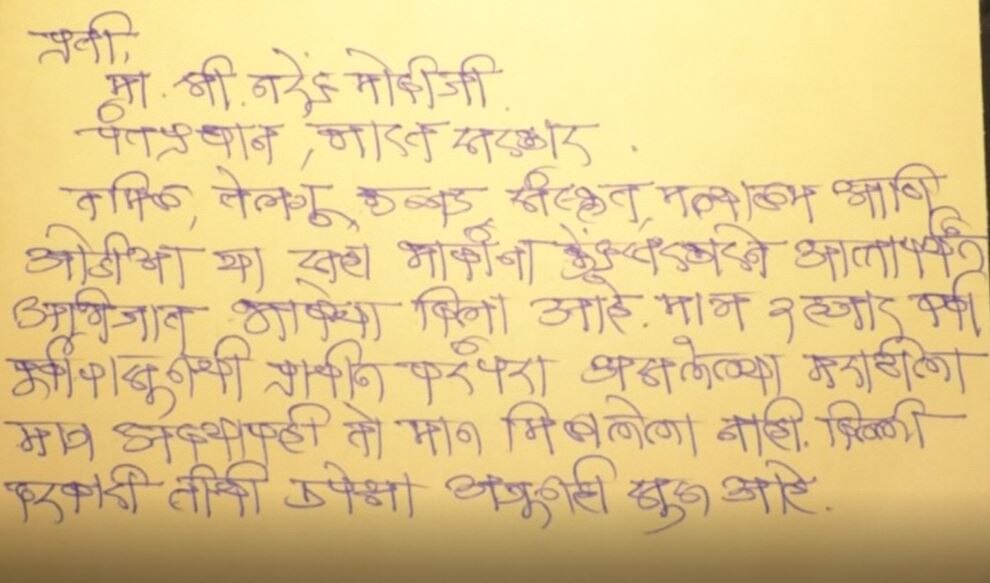 प्रती,
मा. श्री. नरेंद्र मोदीजी.
पंतप्रधान, भारत सरकार.
तमिळ, तेलगू, कन्नड, संस्कृत, मल्याळम आणि
ओडीआ या सहा भाषांना केंद्रसरकारने आत्तापर्यंत
अभिजात भाषेचा दिला आहे. मात्र २ हजार वर्षां
पूर्वीपासूनची प्राचीन परंपरा असलेल्या मराठीला
मात्र अद्यापही तो मान मिळालेला नाही. दिल्ली
दरबारी तीची उपेक्षा अजूनही सुरु आहे.